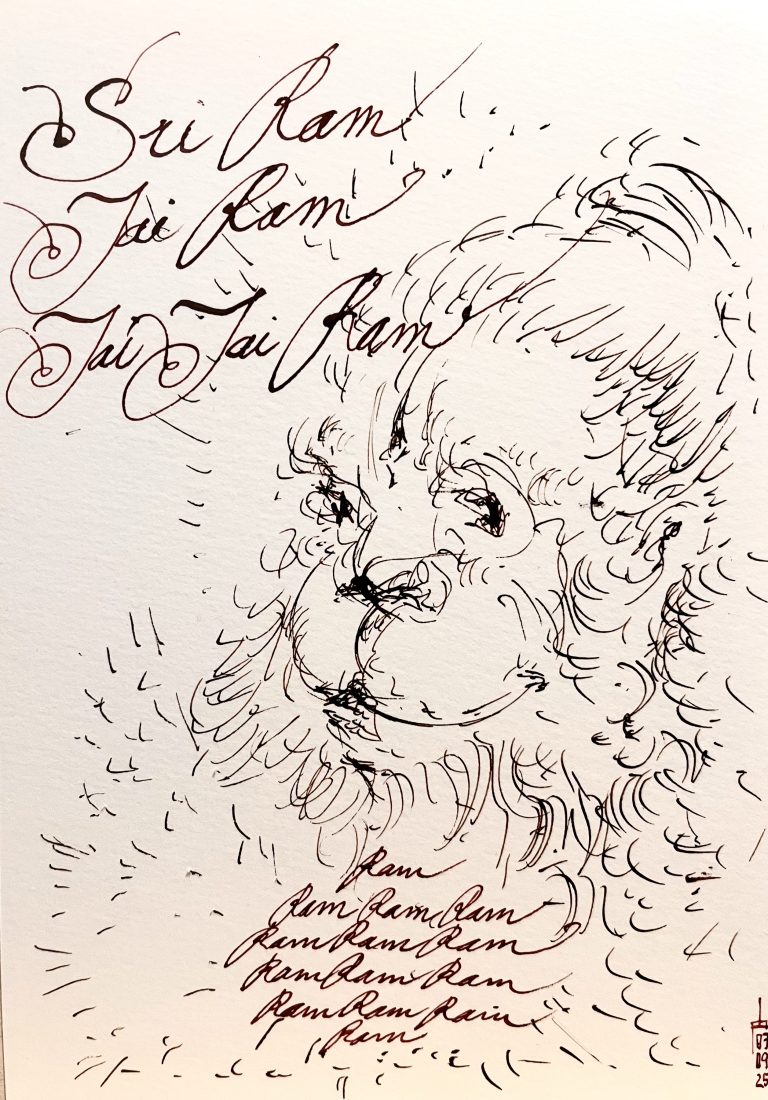 Sri Ram
Jai Ram
Jai Jai Ram
Ram
Ram Ram Ram
Ram Ram Ram
Ram Ram Ram
Ram Ram Ram
Ram
07
09
25